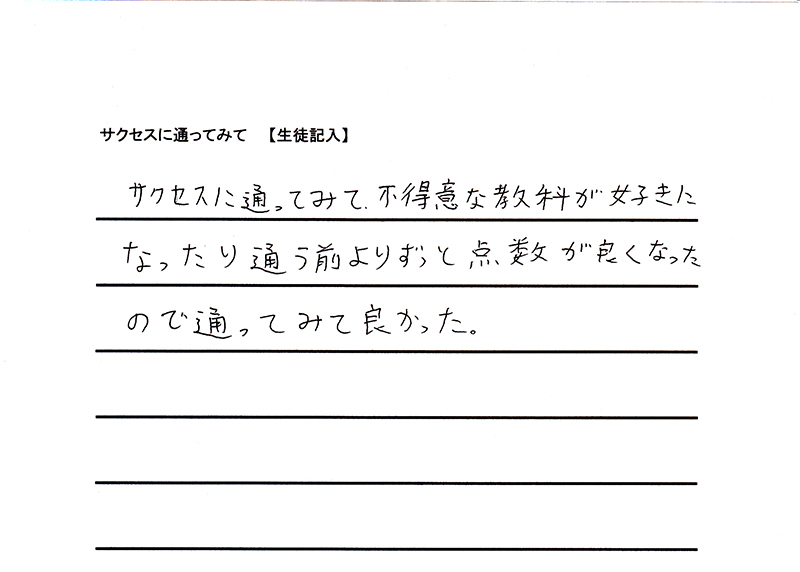 サクセスに通ってみて 【生徒記入】
サクセスに通ってみて、不得意な教科が好きに
なったり通う前よりずっと点数が良くなった
ので通ってみて良かった。